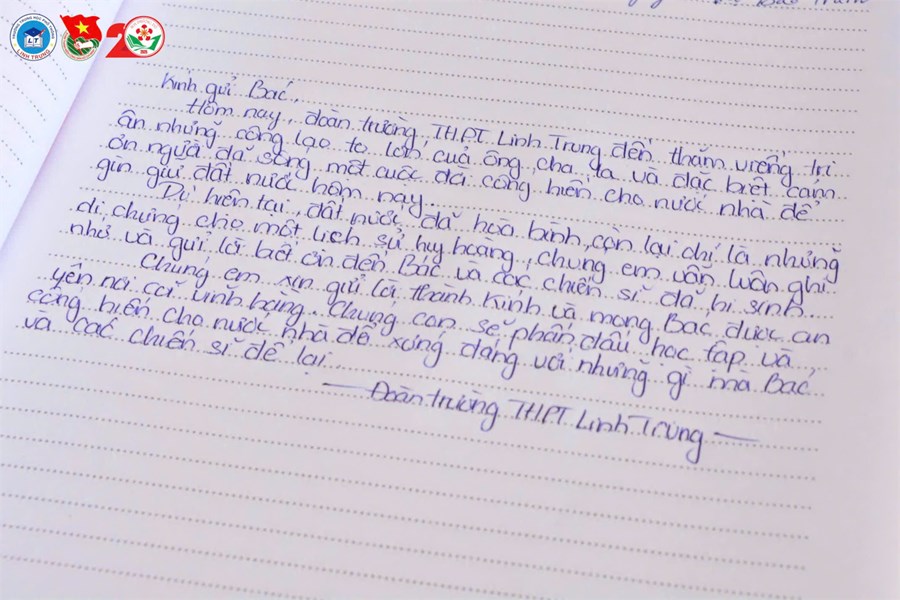 LINH TRUNG
20
Kính gửi Bác,
Hôm nay, đoàn trường THPT Linh Trung đến thăm viếng tri
ân những công lao to lớn của ông cha ta và đặc biệt cảm
ơn người đã sống một cuộc đời cống hiến cho nước nhà để
gìn giữ đất nước hôm nay.
Dù hiện tại, đất nước đã hoà bình, còn lại chỉ là những
di chứng cho một lịch sử huy hoàng, chúng em vẫn luôn ghi
nhớ và gửi lời biết ơn đến Bác và các chiến sĩ đã hi sinh.
Chúng em xin gửi lời thành kính và mong Bác được an
yên nơi cõi vĩnh hằng. Chúng con sẽ phấn đấu học tập và
cống hiến cho nước nhà để xứng đáng với những gì mà Bác
và các chiến sĩ để lại.
— Đoàn trường THPT Linh Trung —